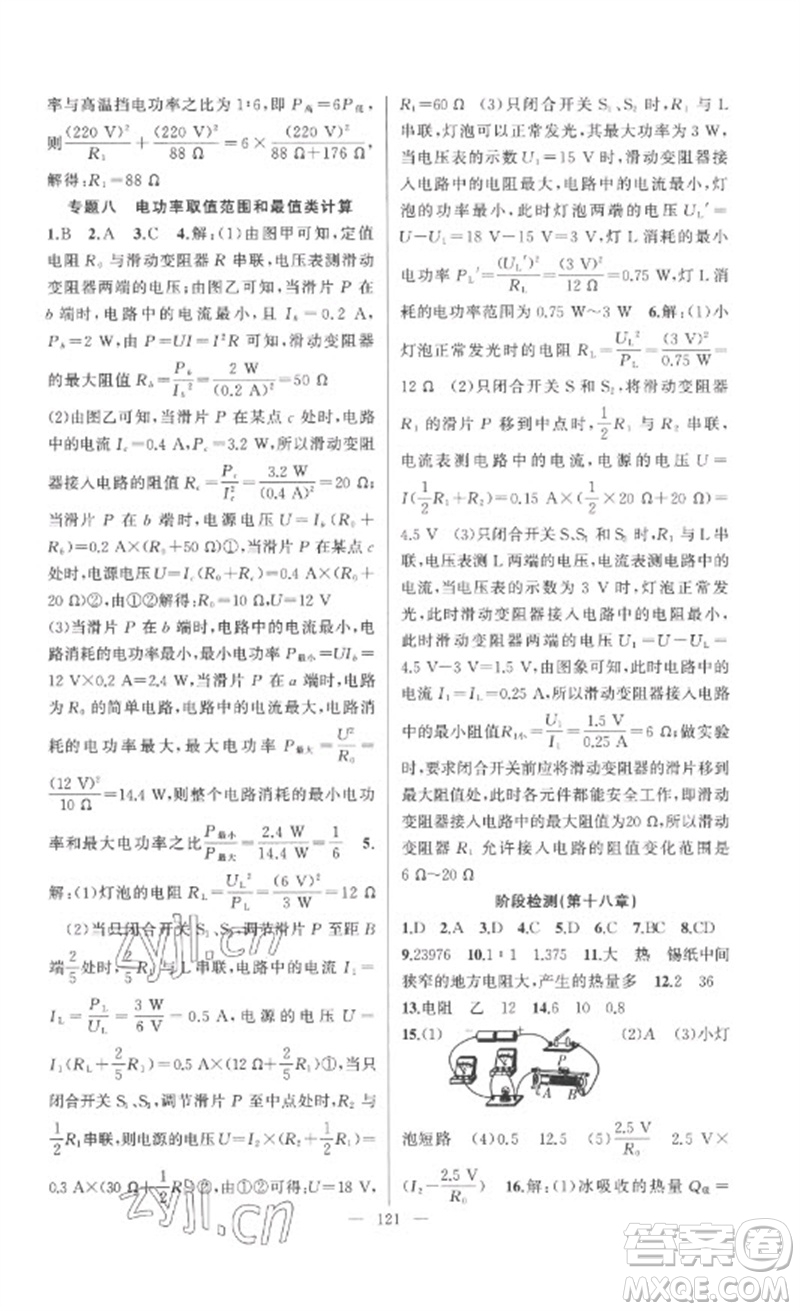 率与高温挡电功率之比为 1∶6,即 P高=6P低,
则(220 V)²/R₁+(220 V)²/88 Ω=6×(220 V)²/(88 Ω+176 Ω),
解得:R₁=88 Ω
专题八 电功率取值范围和最值类计算
1.B 2.A 3.C 4.解:(1)由图甲可知,定值
电阻 R₀ 与滑动变阻器 R 串联,电压表测滑动
变阻器两端的电压;由图乙可知,当滑片 P 在
b 端时,电路中的电流最小,且 I_b=0.2 A,
P_b=2 W,由 P=UI=I²R 可知,滑动变阻器
的最大阻值 R_b=P_b/I_b²=2 W/(0.2 A)²=50 Ω
(2)由图乙可知,当滑片 P 在某点 c 处时,电路
中的电流 I_c=0.4 A,P_c=3.2 W,所以滑动变阻
器接入电路的阻值 R_c=P_c/I_c²=3.2 W/(0.4 A)²=20 Ω;
当滑片 P 在 b 端时,电源电压 U=I_b(R₀+
R_b)=0.2 A×(R₀+50 Ω)①,当滑片 P 在某点 c
处时,电源电压 U=I_c(R₀+R_c)=0.4 A×(R₀+
20 Ω)②,由①②解得:R₀=10 Ω,U=12 V
(3)当滑片 P 在 b 端时,电路中的电流最小,电
路消耗的电功率最小,最小电功率 P最小=UI_b=
12 V×0.2 A=2.4 W;当滑片 P 在 a 端时,电路
为 R₀ 的简单电路,电路中的电流最大,电路消
耗的电功率最大,最大电功率 P最大=U²/R₀=
(12 V)²/10 Ω=14.4 W,则整个电路消耗的最小电功
率和最大电功率之比P最小/P最大=2.4 W/14.4 W=1/6 5.
解:(1)灯泡的电阻 R_L=U_L²/P_L=(6 V)²/3 W=12 Ω
(2)当只闭合开关 S₁、S₃,调节滑片 P 至距 B
端2/5处时,2/5R₁与 L 串联,电路中的电流 I₁=
I_L=P_L/U_L=3 W/6 V=0.5 A,电源的电压 U=
I₁(R_L+2/5R₁)=0.5 A×(12 Ω+2/5R₁)①,当只
闭合开关 S₁、S₃,调节滑片 P 至中点处时,R₂ 与
1/2R₁串联,则电源的电压 U=I₂×(R₂+1/2R₁)=
0.3 A×(30 Ω+1/2R₁)②,由①②可得:U=18 V,
R₁=60 Ω (3)只闭合开关 S₁、S₂ 时,R₁ 与 L
串联,灯泡可以正常发光,其最大功率为 3 W,
当电压表的示数 U₁=15 V 时,滑动变阻器接
入电路中的电阻最大,电路中的电流最小,灯
泡的功率最小,此时灯泡两端的电压 U_L′=
U-U₁=18 V-15 V=3 V,灯 L 消耗的最小
电功率 P_L′=(U_L′)²/R_L=(3 V)²/12 Ω=0.75 W,灯 L 消
耗的电功率范围为 0.75 W~3 W 6.解:(1)小
灯泡正常发光时的电阻 R_L=U_L²/P_L=(3 V)²/0.75 W=
12 Ω (2)只闭合开关 S 和 S₂,将滑动变阻器
R₁ 的滑片 P 移到中点时,1/2R₁ 与 R₂ 串联,
电流表测电路中的电流,电源的电压 U=
I(1/2R₁+R₂)=0.15 A×(1/2×20 Ω+20 Ω)=
4.5 V (3)只闭合开关 S、S₁ 时,R₁ 与 L 串
联,电压表测 L 两端的电压,电流表测电路中的
电流,当电压表的示数为 3 V 时,灯泡正常发光,
此时滑动变阻器接入电路中的电阻最小,
此时滑动变阻器两端的电压 U₁=U-U_L=
4.5 V-3 V=1.5 V,由图象可知,此时电路中的
电流 I₁=I_L=0.25 A,所以滑动变阻器接入电路
中的最小阻值R₁小=U₁/I₁=1.5 V/0.25 A=6 Ω;做实验
时,要求闭合开关前应将滑动变阻器的滑片移到
最大阻值处,此时各元件都能安全工作,即滑动
变阻器接入电路中的最大阻值为20 Ω,所以滑动
变阻器 R₁ 允许接入电路中的阻值变化范围是
6 Ω~20 Ω
阶段检测(第十八章)
1.D 2.D 3.D 4.C 5.D 6.D 7.BC 8.CD
9.23976 10.1∶1 1.375 11.大 热 锡纸中间
狭窄的地方电阻大,产生的热量多 12.2 36
13.电阻 乙 12 14.6 10 0.8
15.(1) A P B (2)A (3)小灯
泡短路 (4)0.5 12.5 (5)2.5 V/R₀ 2.5 V×
(I₂-2.5 V/R₀) 16.解:(1)冰吸收的热量 Q吸=
— 121 —
zyjl.cn
zyjl.cn
答案卷
MXQE.COM